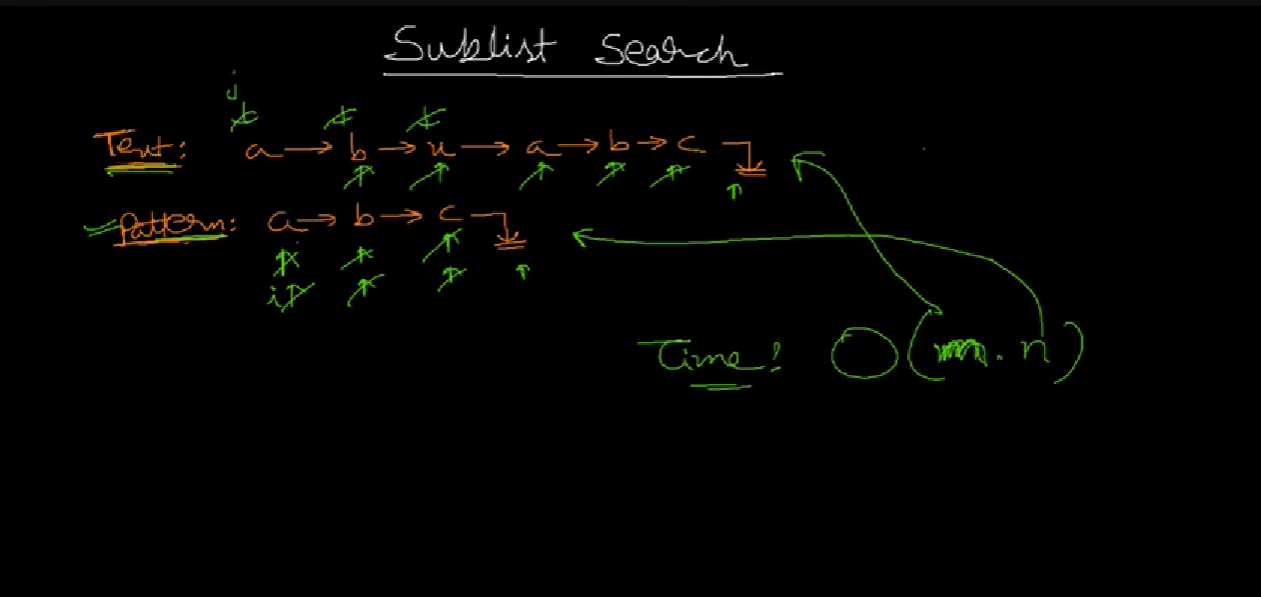 Sublist Search
j
Text: a → b → x → a → b → c
Pattern: a → b → c
i
Time: O(m.n)